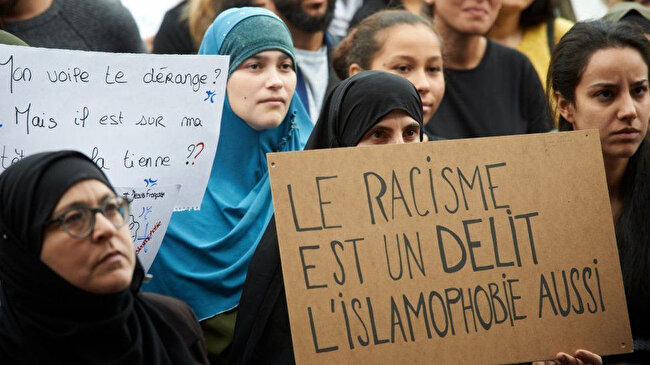 Mon voile te dérange ?
Mais il est sur ma
la tienne ??
LE RACISME
EST UN DELIT
L'ISLAMOPHOBIE AUSSI